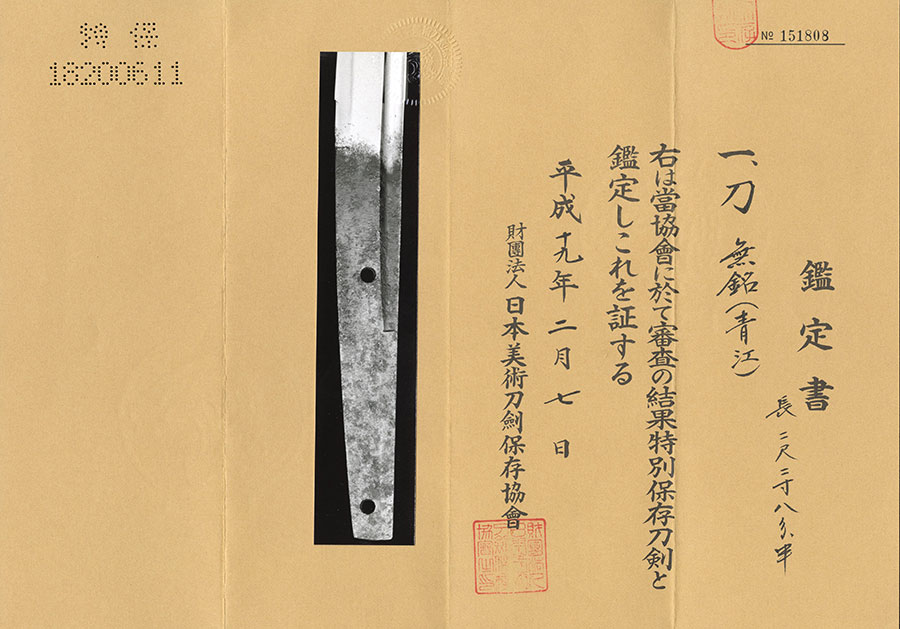 特保
18200611
№ 151808
鑑定書
一、刀 無銘(青江)
長 二尺三寸八分半
右は當協會に於て審査の結果特別保存刀剣と
鑑定しこれを証する
平成十九年二月七日
財團法人日本美術刀劍保存協會